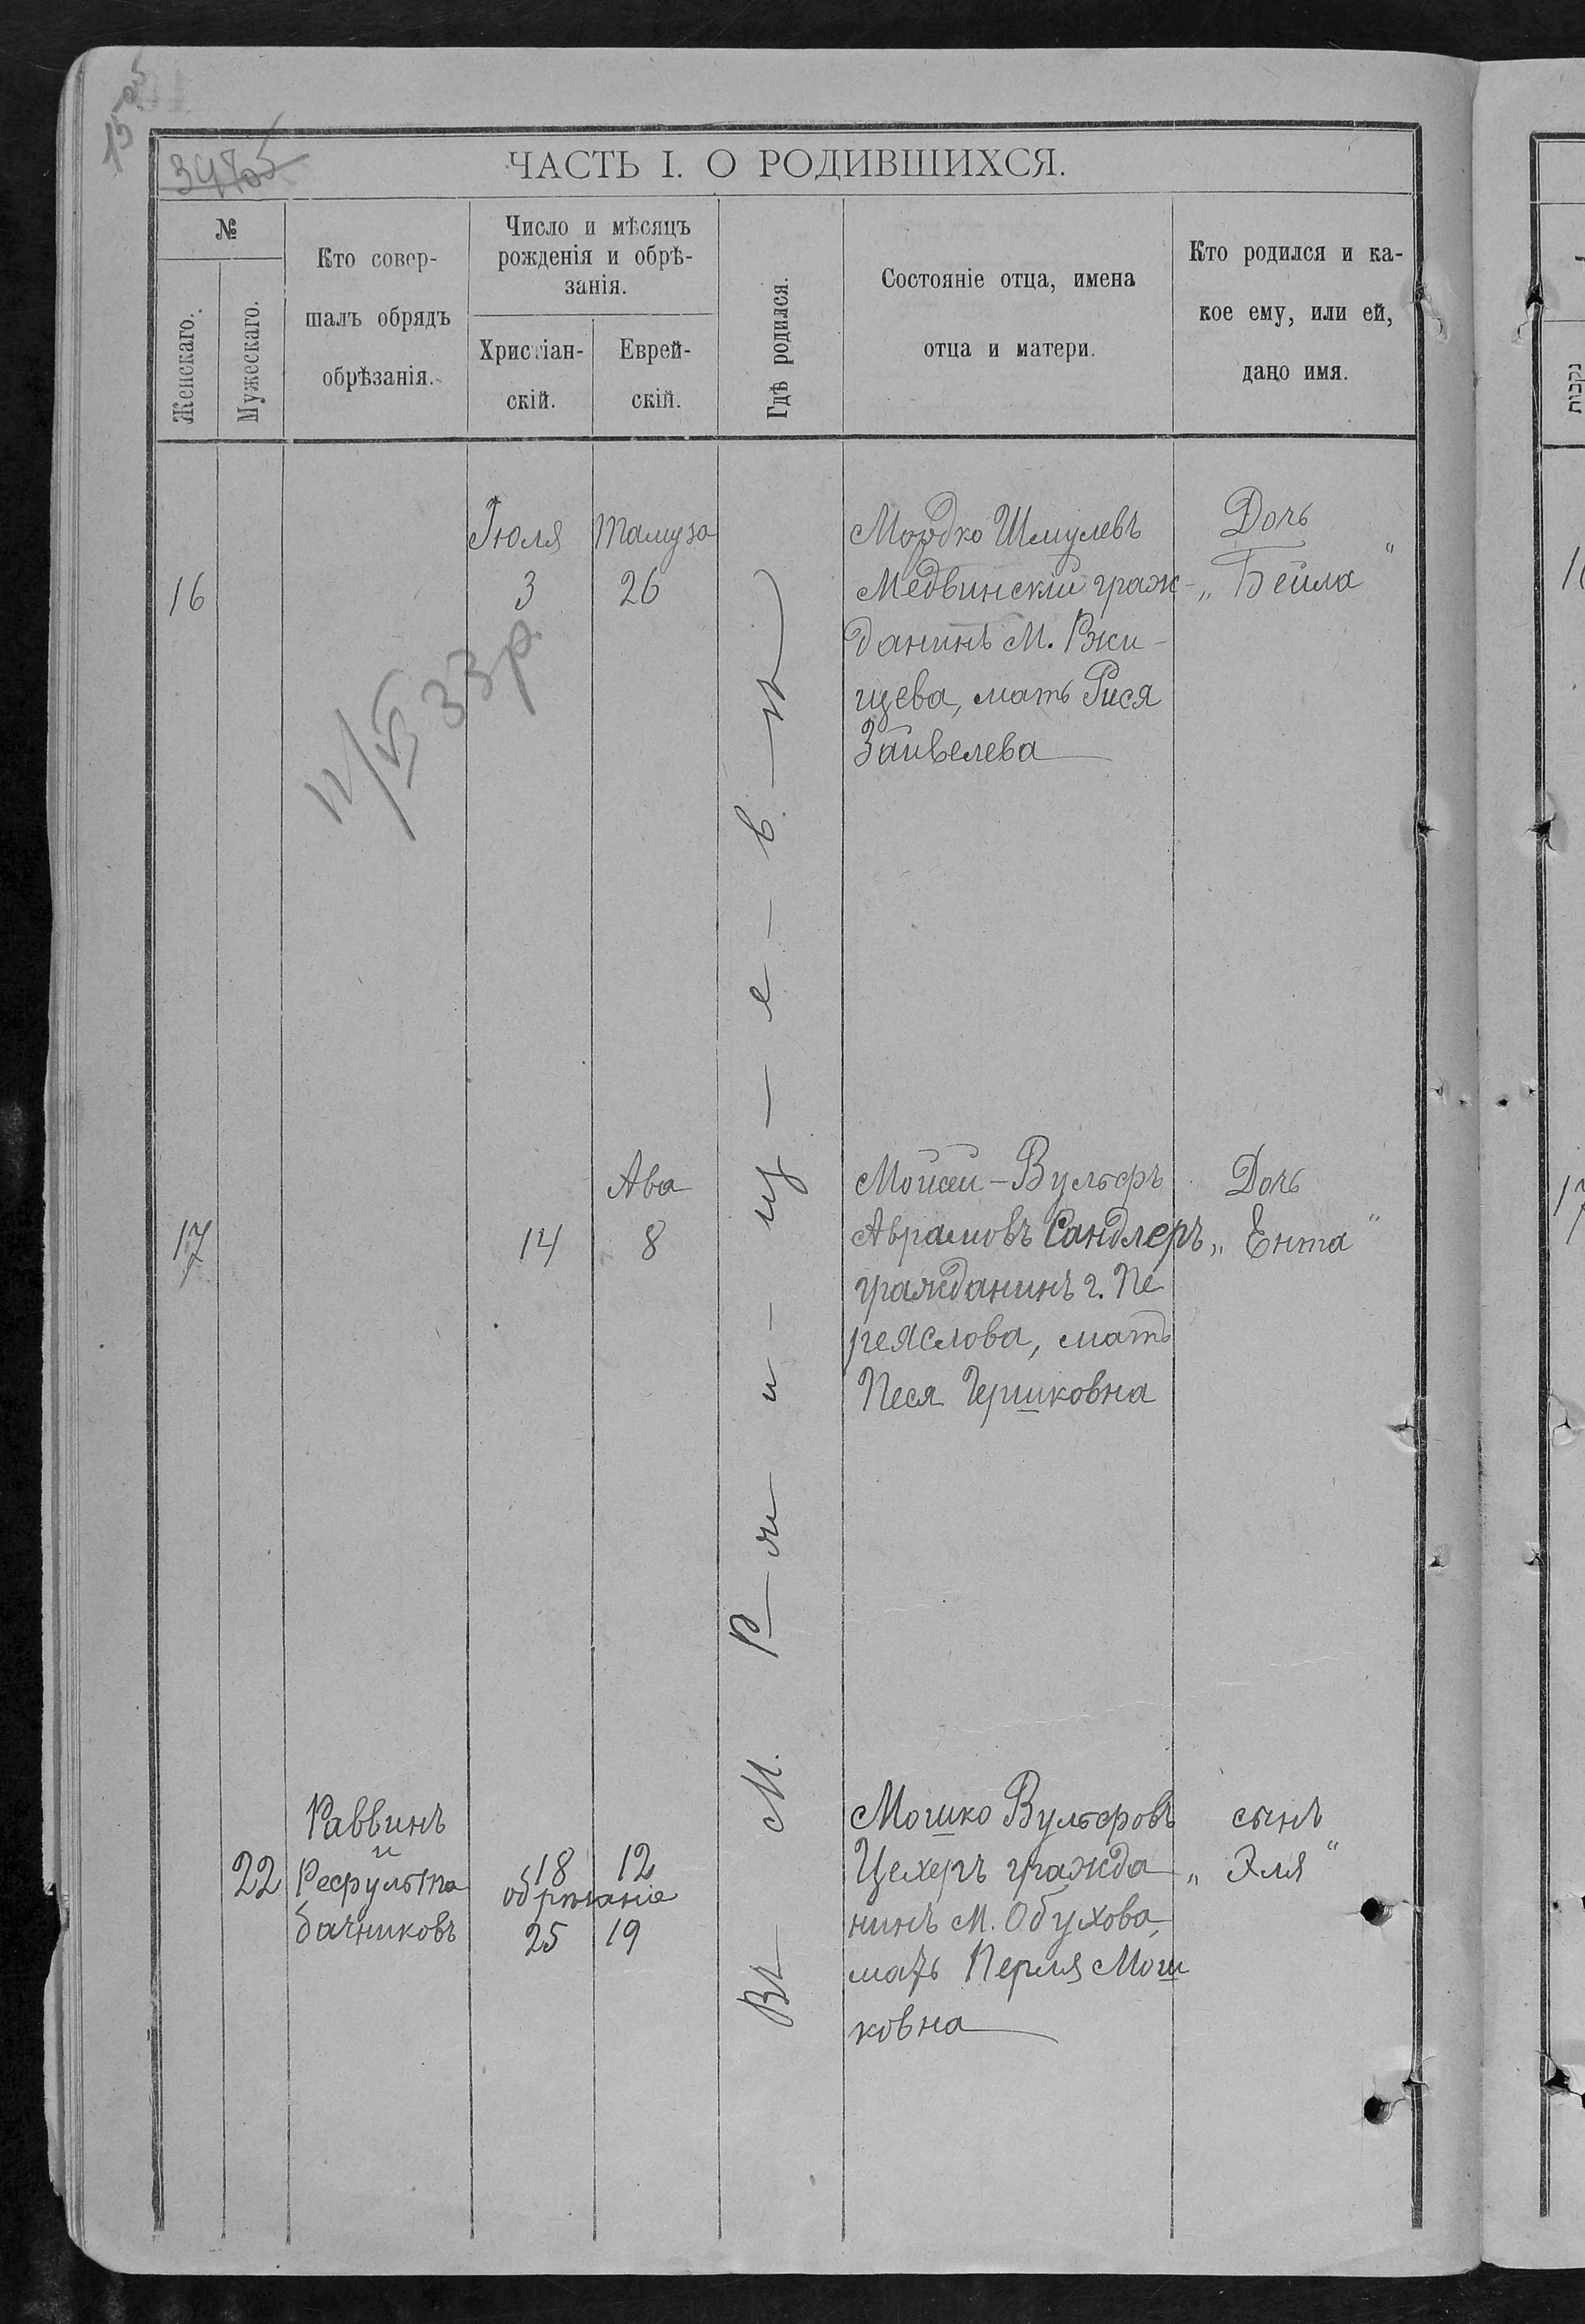 15 05
34805
ЧАСТЬ I. О РОДИВШИХСЯ.
№
Женскаго.
Мужескаго.
Кто совер-
шалъ обрядъ
обрѣзанія.
Число и мѣсяцъ
рожденія и обрѣ-
занія.
Христіан-
скій.
Еврей-
скій.
Гдѣ родился.
Состояніе отца, имена
отца и матери.
Кто родился и ка-
кое ему, или ей,
дано имя.
נקבות
Въ М. Р-ж-и-щ-е-в-ѣ
16
Іюля
3
Тамуза
26
33 р.
Мордко Шмулевъ
Медвинскій граж-
данинъ М. Ржи-
щева, мать Рися
Зайвелева
Дочь
„Бейла"
17
14
Ава
8
Мойсей-Вульфъ
Аврамовъ Сандлеръ
гражданинъ г. Пе
реяслова, мать
Песя Гершковна
Дочь
„Ента"
22
Раввинъ
и
Рефульта
бачниковъ
18
12
обрѣзаніе
25
19
Мошко Вульфовъ
Цехеръ гражда
нинъ М. Обухова,
мать Перля Мош
ковна
сынъ
„Эля"